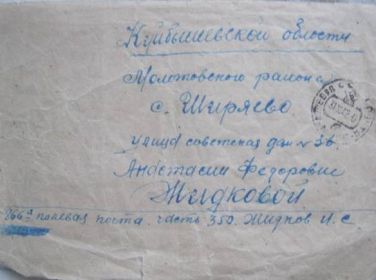 Куйбышевской области
Молотовского района
с. Ширяево
улица советская дом № 36
Анастасии Федоровне
Жидковой
266я полевая почта. часть 350. Жидков И. С